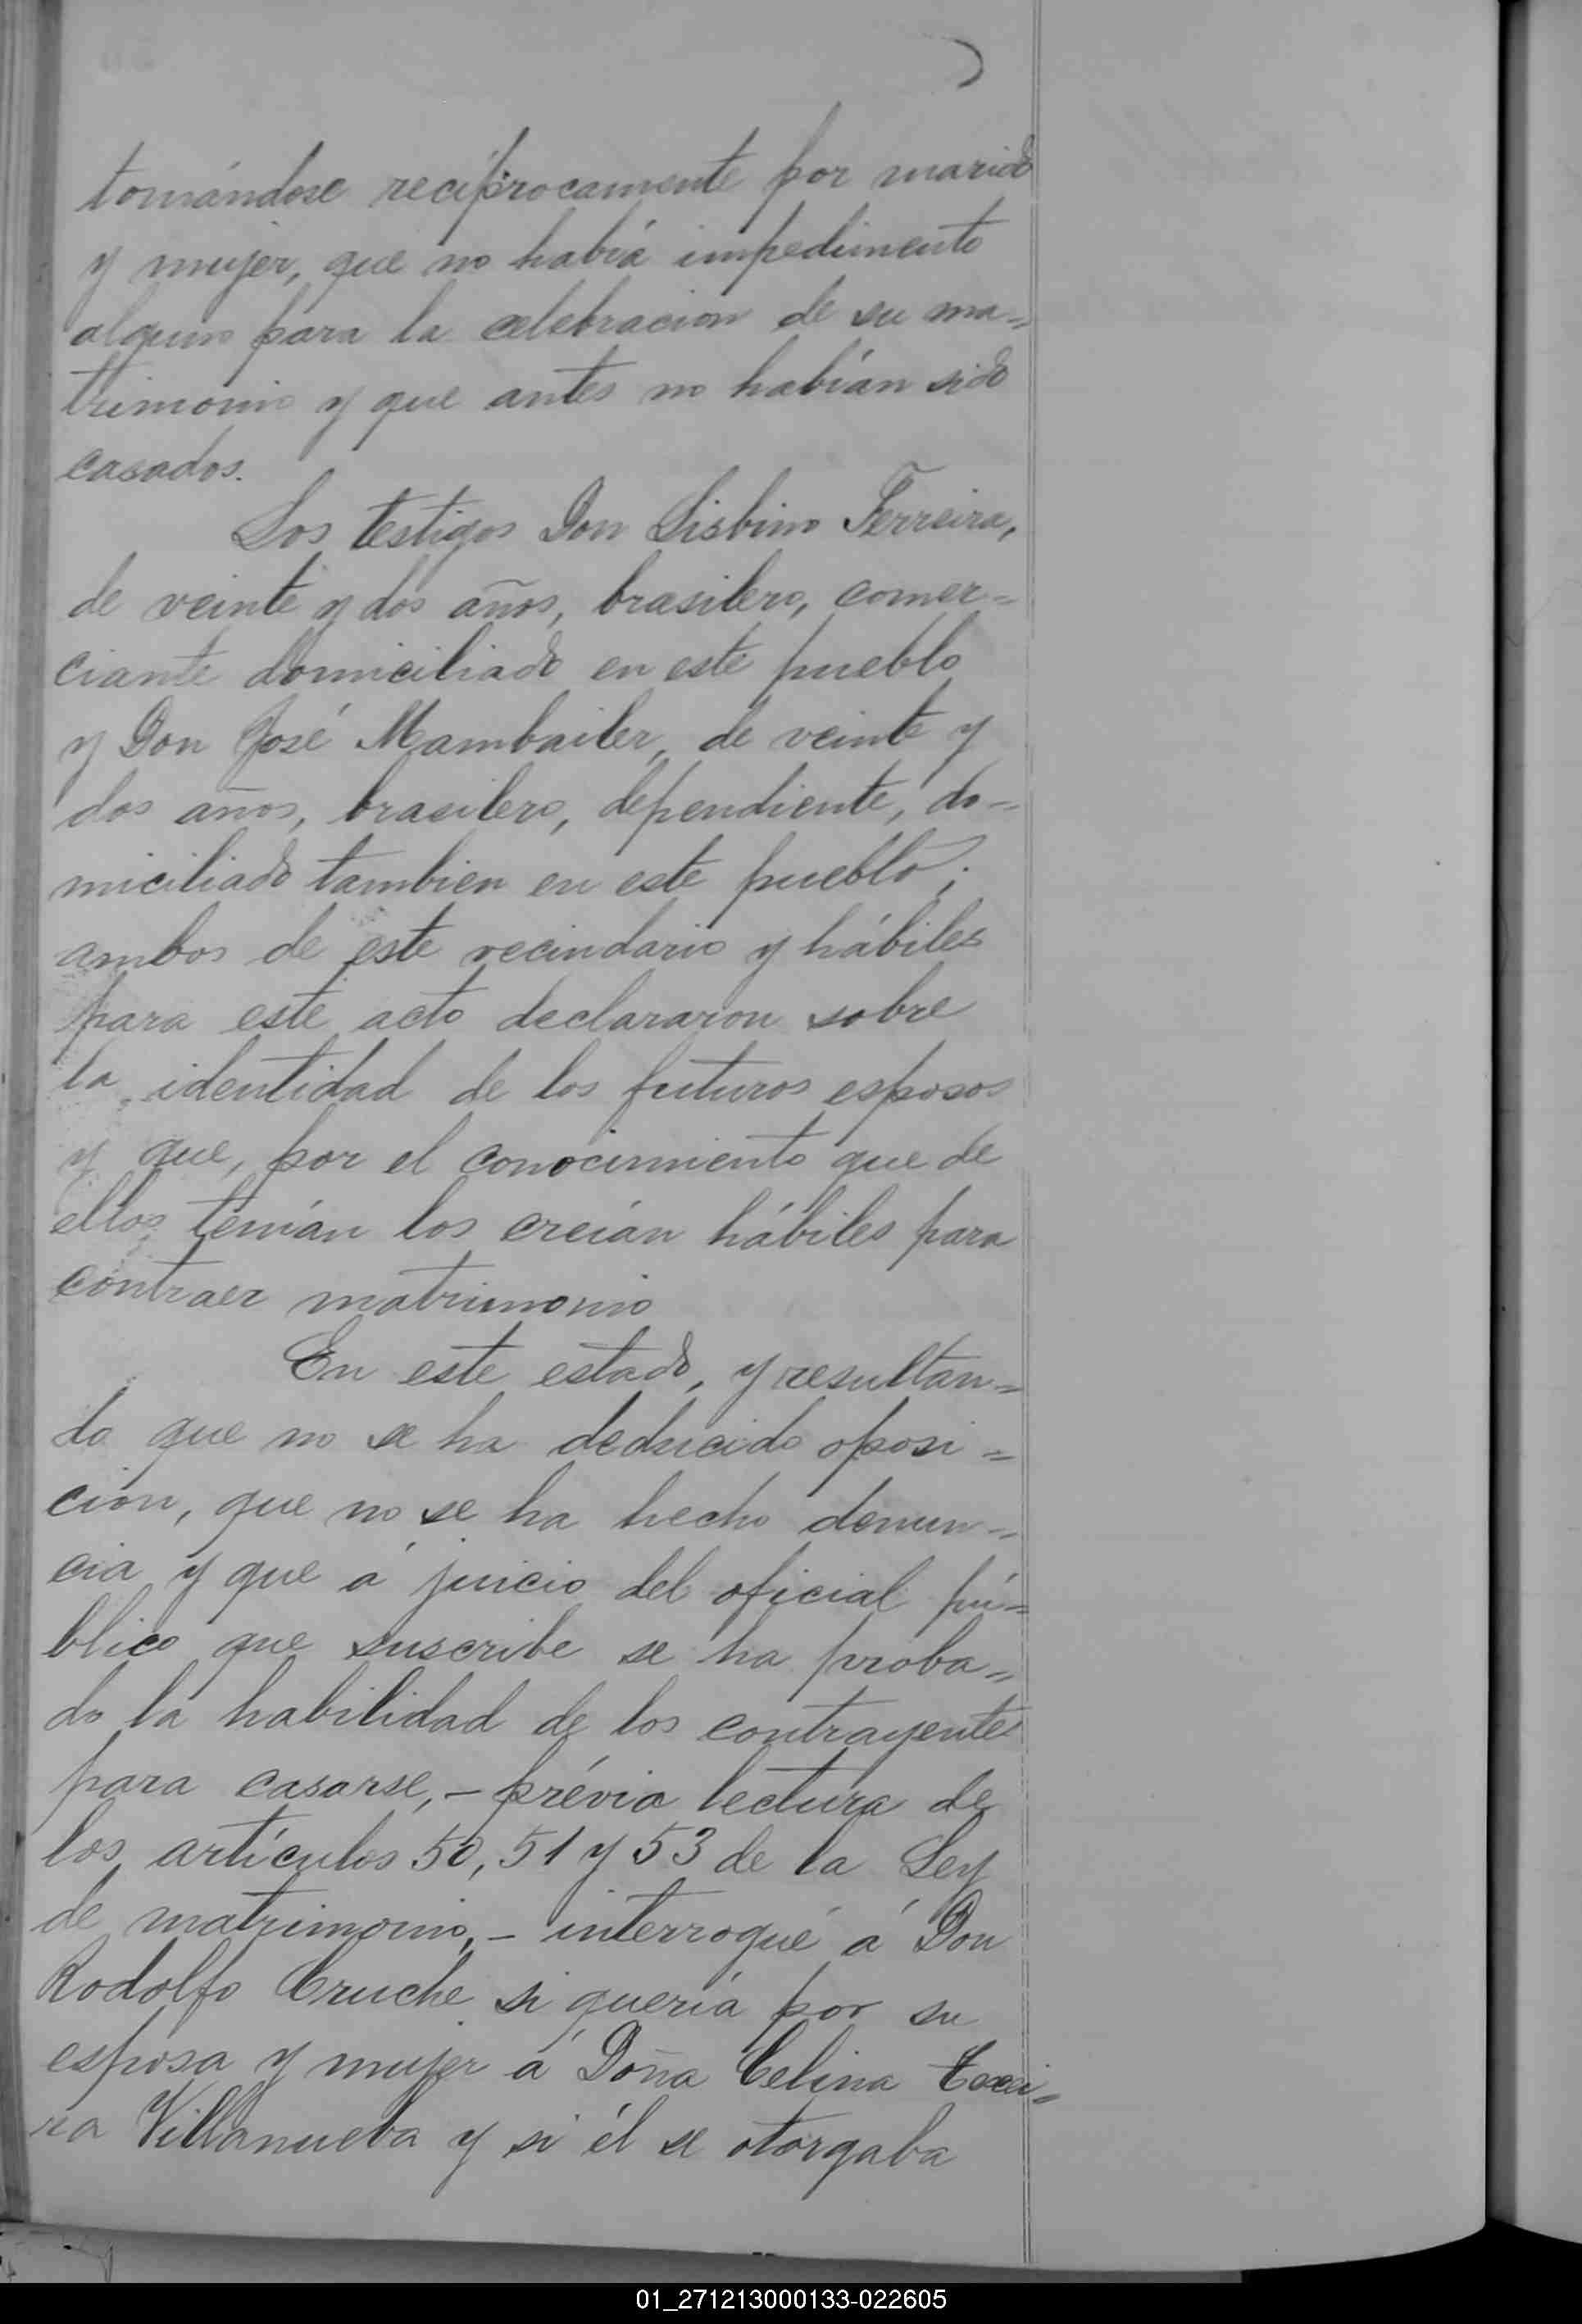 tomándose recíprocamente por marido
y mujer, que no había impedimento
alguno para la celebracion de su ma=
trimonio y que antes no habían sido
casados.
Los testigos Don Lisbino Ferreira,
de veinte y dos años, brasilero, comer=
ciante domiciliado en este pueblo
y Don José Mambailer, de veinte y
dos años, brasilero, dependiente, do=
miciliado tambien en este pueblo;
ambos de este vecindario y hábiles
para este acto declararon sobre
la identidad de los futuros esposos
y que, por el conocimiento que de
ellos tenían los creían hábiles para
contraer matrimonio
En este estado, y resultan=
do que no se ha deducido oposi=
cion, que no se ha hecho denun=
cia y que á juicio del oficial pú=
blico que suscribe se ha proba=
do la habilidad de los contrayentes
para casarse,- prévia lectura de
los artículos 50, 51 y 53 de la Ley
de matrimonio,- interrogué á Don
Rodolfo Cruche si quería por su
esposa y mujer á Doña Celina
Villanueba y si él se otorgaba
01_271213000133-022605